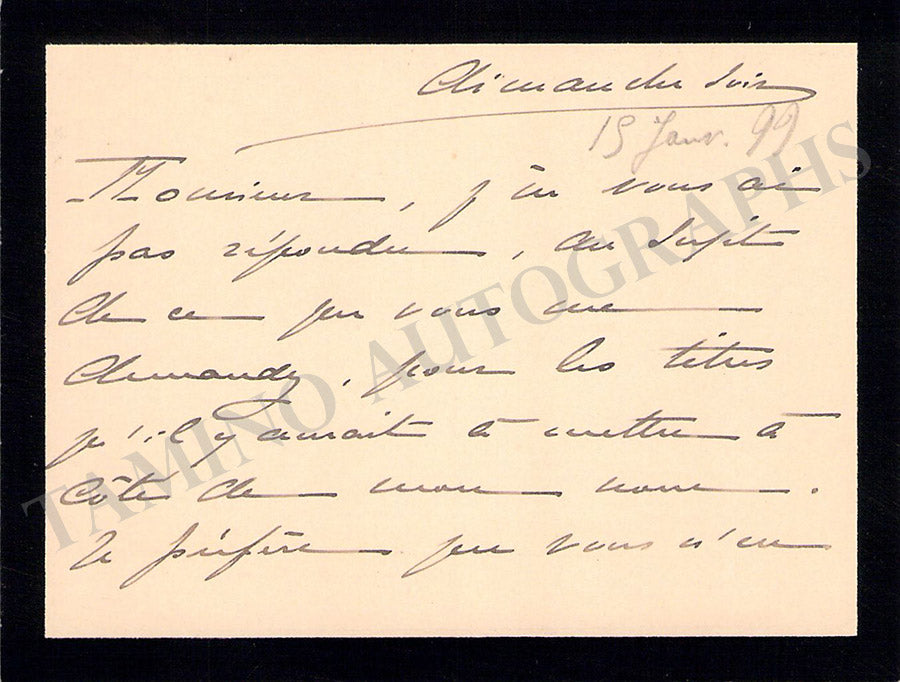 Dimanche soir
15 Janv. 99
Monsieur, j'en vous ai
pas répondu, au sujet
de ce que vous me
demandez, pour les titres
qu'il y aurait à mettre à
côté de mon nom.
Je préfère que vous n'en
TAMINO AUTOGRAPHS